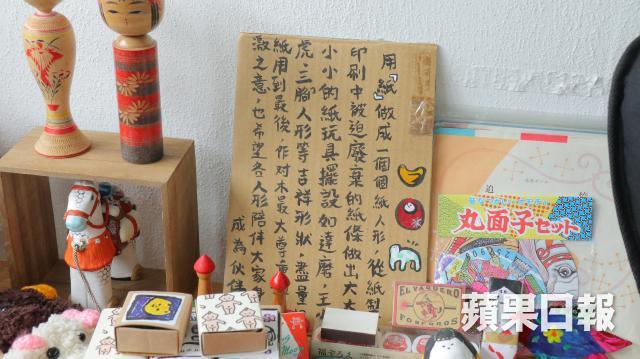 用『紙』做成一個個紙人形，從紙製
印刷中被迫廢棄的紙條做出大大
小小的紙玩具擺設如達磨，
虎，三腳人形等吉祥形狀，盡量
紙用到最後，作對木最大尊重
激之意，也希望各人形陪伴大家身
成為伙伴
丸面子セット
EL VAQUERO
FOSFOROS
蘋果日報